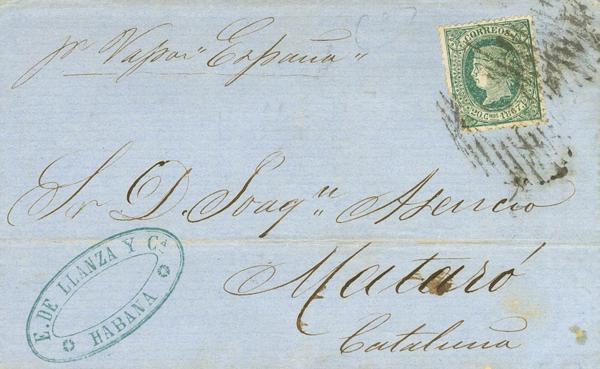 pr Vapor "España"
CORREOS
20 Cs 1867
Sr D. Joaqn Asencio
Mataró
Cataluña
E. DE LLANZA Y Ca
HABANA